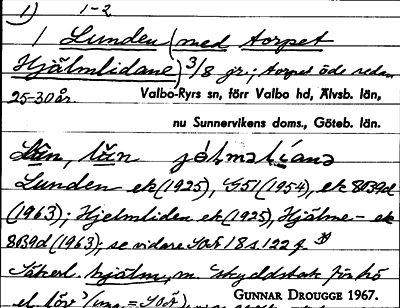 1) 1-2
1 Lunden (med torpet
Hjälmlidane) 3/8 gr.; torpet öde sedan
25-30 år. Valbo-Ryrs sn, förr Valbo hd, Älvsb. län,
nu Sunnervikens doms., Göteb. län.
Lunden ek (1925), G51 (1954), ek 8B9d
(1963); Hjelmliden ek (1925), Hjälme- ek
8B9d (1963); se vidare SOÄ 18 s. 122 f.
Säkerl. hjälm, m. skyddstak för hö
el. löv
GUNNAR DROUGGE 1967.